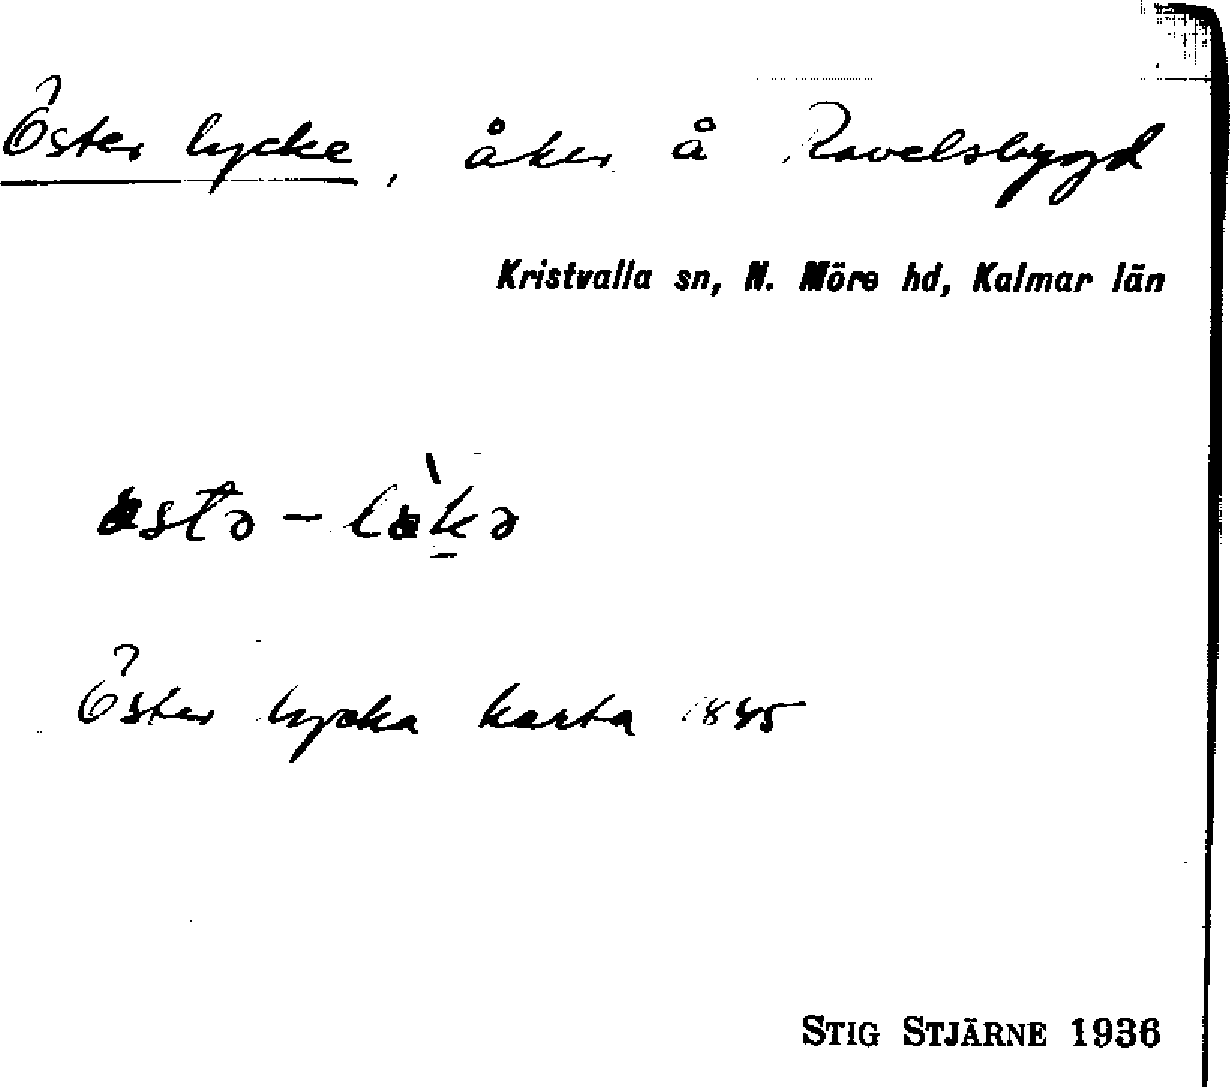 Öster lycke, åker å Ravelsbygd
Kristvalla sn, N. Möre hd, Kalmar län
Öster lycka karta 1845
STIG STJÄRNE 1936